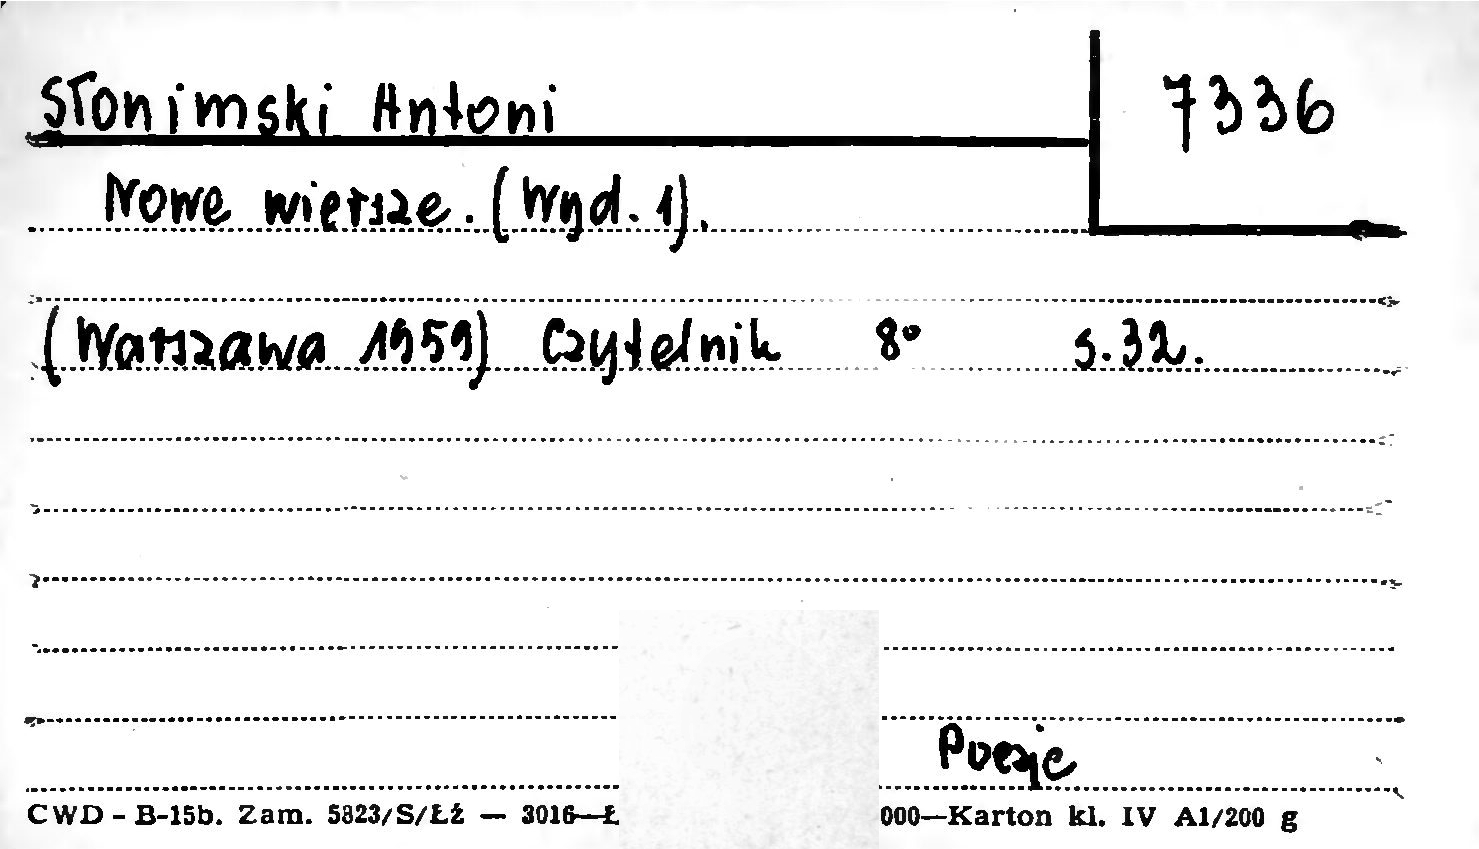 Słonimski Antoni
7336
Nowe wiersze. (Wyd. 1).
(Warszawa 1959) Czytelnik 8° s.32.
Poezje
CWD - B-15b. Zam. 5823/S/Łź — 3016—Ł 000—Karton kl. IV A1/200 g